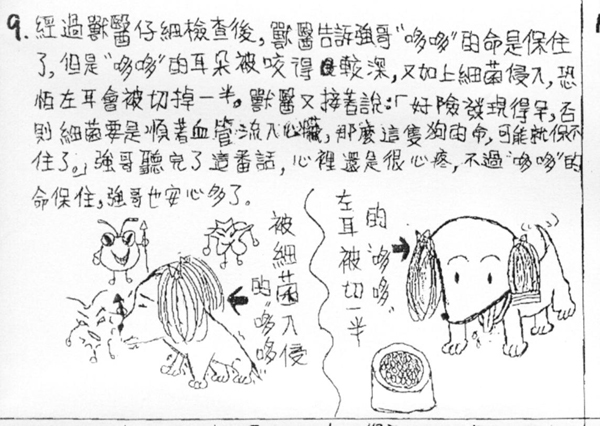 9. 經過獸醫仔細檢查後,獸醫告訴強哥"哆哆"的命是保住
了,但是"哆哆"的耳朵被咬得較深,又如上細菌侵入,恐
怕左耳會被切掉一半。獸醫又接著說:「好險發現得早,否
則細菌要是順著血管流入心臟,那麼這隻狗的命,可能就保不
住了。」強哥聽完了這番話,心裡還是很心疼,不過"哆哆"的
命保住,強哥也安心多了。
被細菌入侵
的"哆哆"
的"哆哆"
左耳被切一半